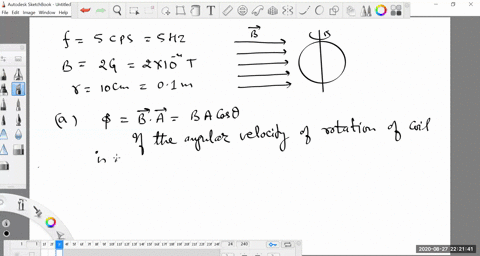 Autodesk SketchBook - Untitled
File Edit Image Window Help
f = 5 CPS = 5HZ
B = 2G = 2×10⁻⁴ T
r = 10Cm = 0.1m
B⃗
B
(a) ϕ = B⃗.A⃗ = BA Cosθ
If the angular velocity of rotation of coil
is
24 240
2020-08-27 22:21:41